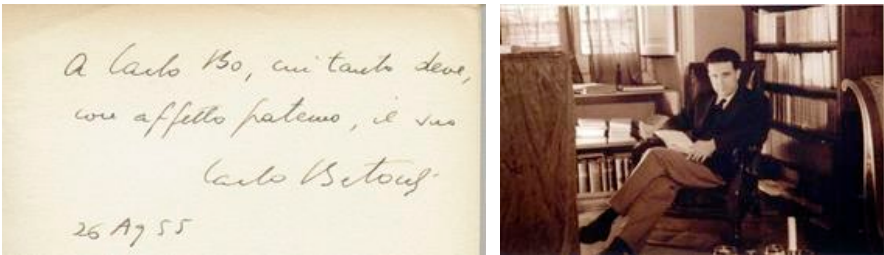 A Carlo Bo, cui tanto deve,
con affetto fraterno, il suo
Carlo Betocchi
26 Ag 55